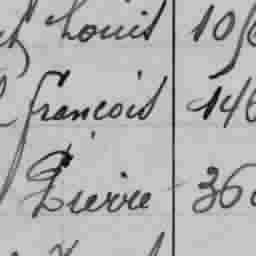 Louis 10
françois 146
Pierre 36